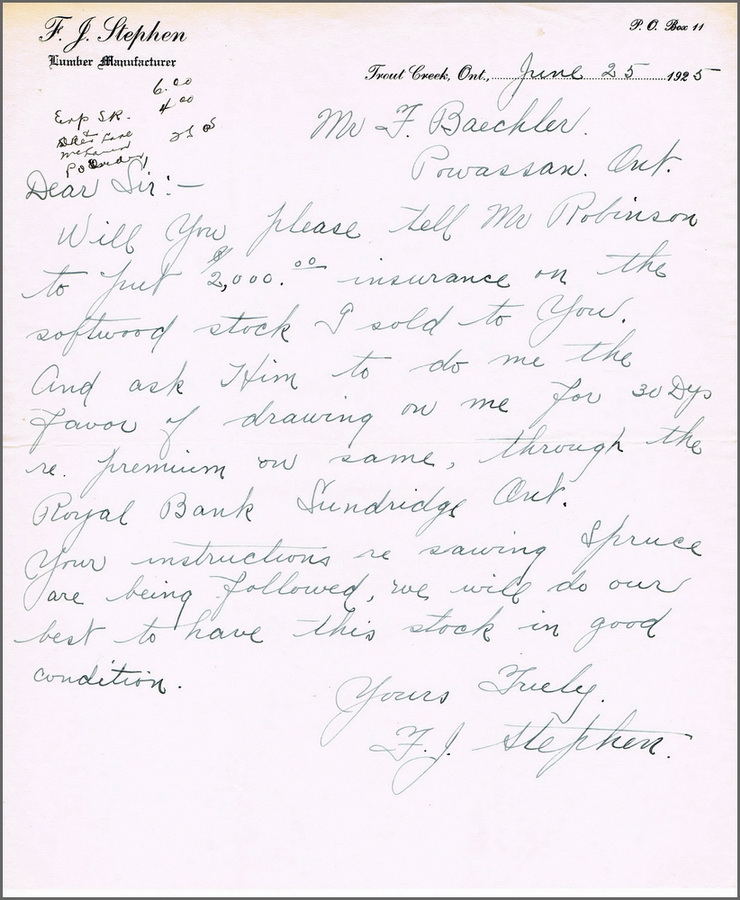 F. J. Stephen
Lumber Manufacturer
P. O. Box 11
Trout Creek, Ont., June 25 1925
6.00
4.00
Mr F. Baechler.
Powassan. Ont.
Dear Sir:—
Will You please tell Mr Robinson
to put $2,000.00 insurance on the
softwood stock I sold to You.
And ask Him to do me the
favor of drawing on me for 30 Dys
re. premium on same, through the
Royal Bank Sundridge Ont.
Your instructions re sawing Spruce
are being followed, we will do our
best to have this stock in good
condition.
Yours Truely.
F. J. Stephen.